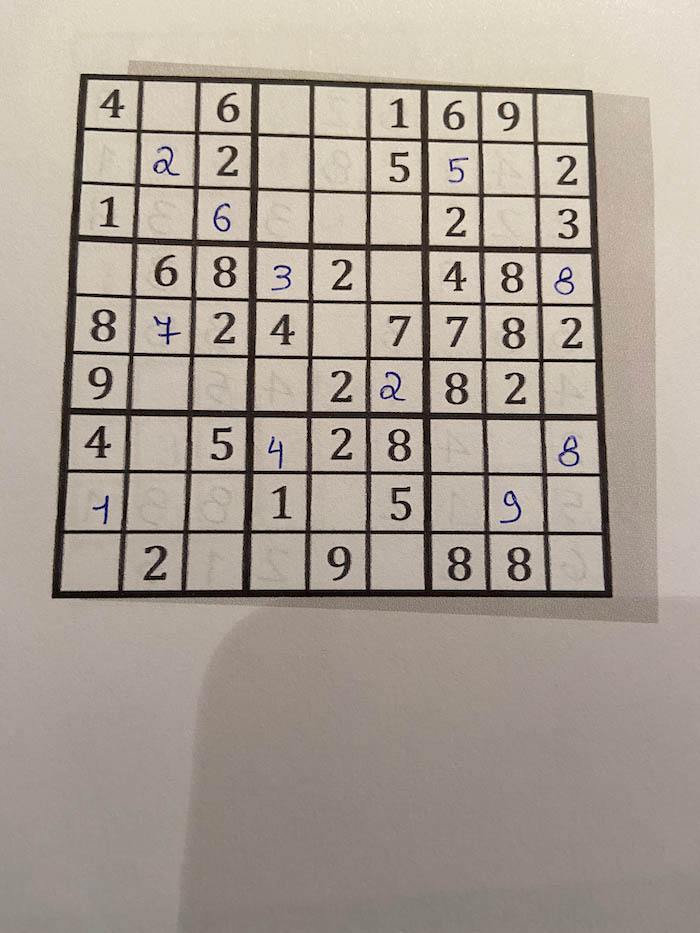 4 6 1 6 9
2 2 5 5 2
1 6 2 3
6 8 3 2 4 8 8
8 7 2 4 7 7 8 2
9 2 2 8 2
4 5 4 2 8 8
1 1 5 9
2 9 8 8